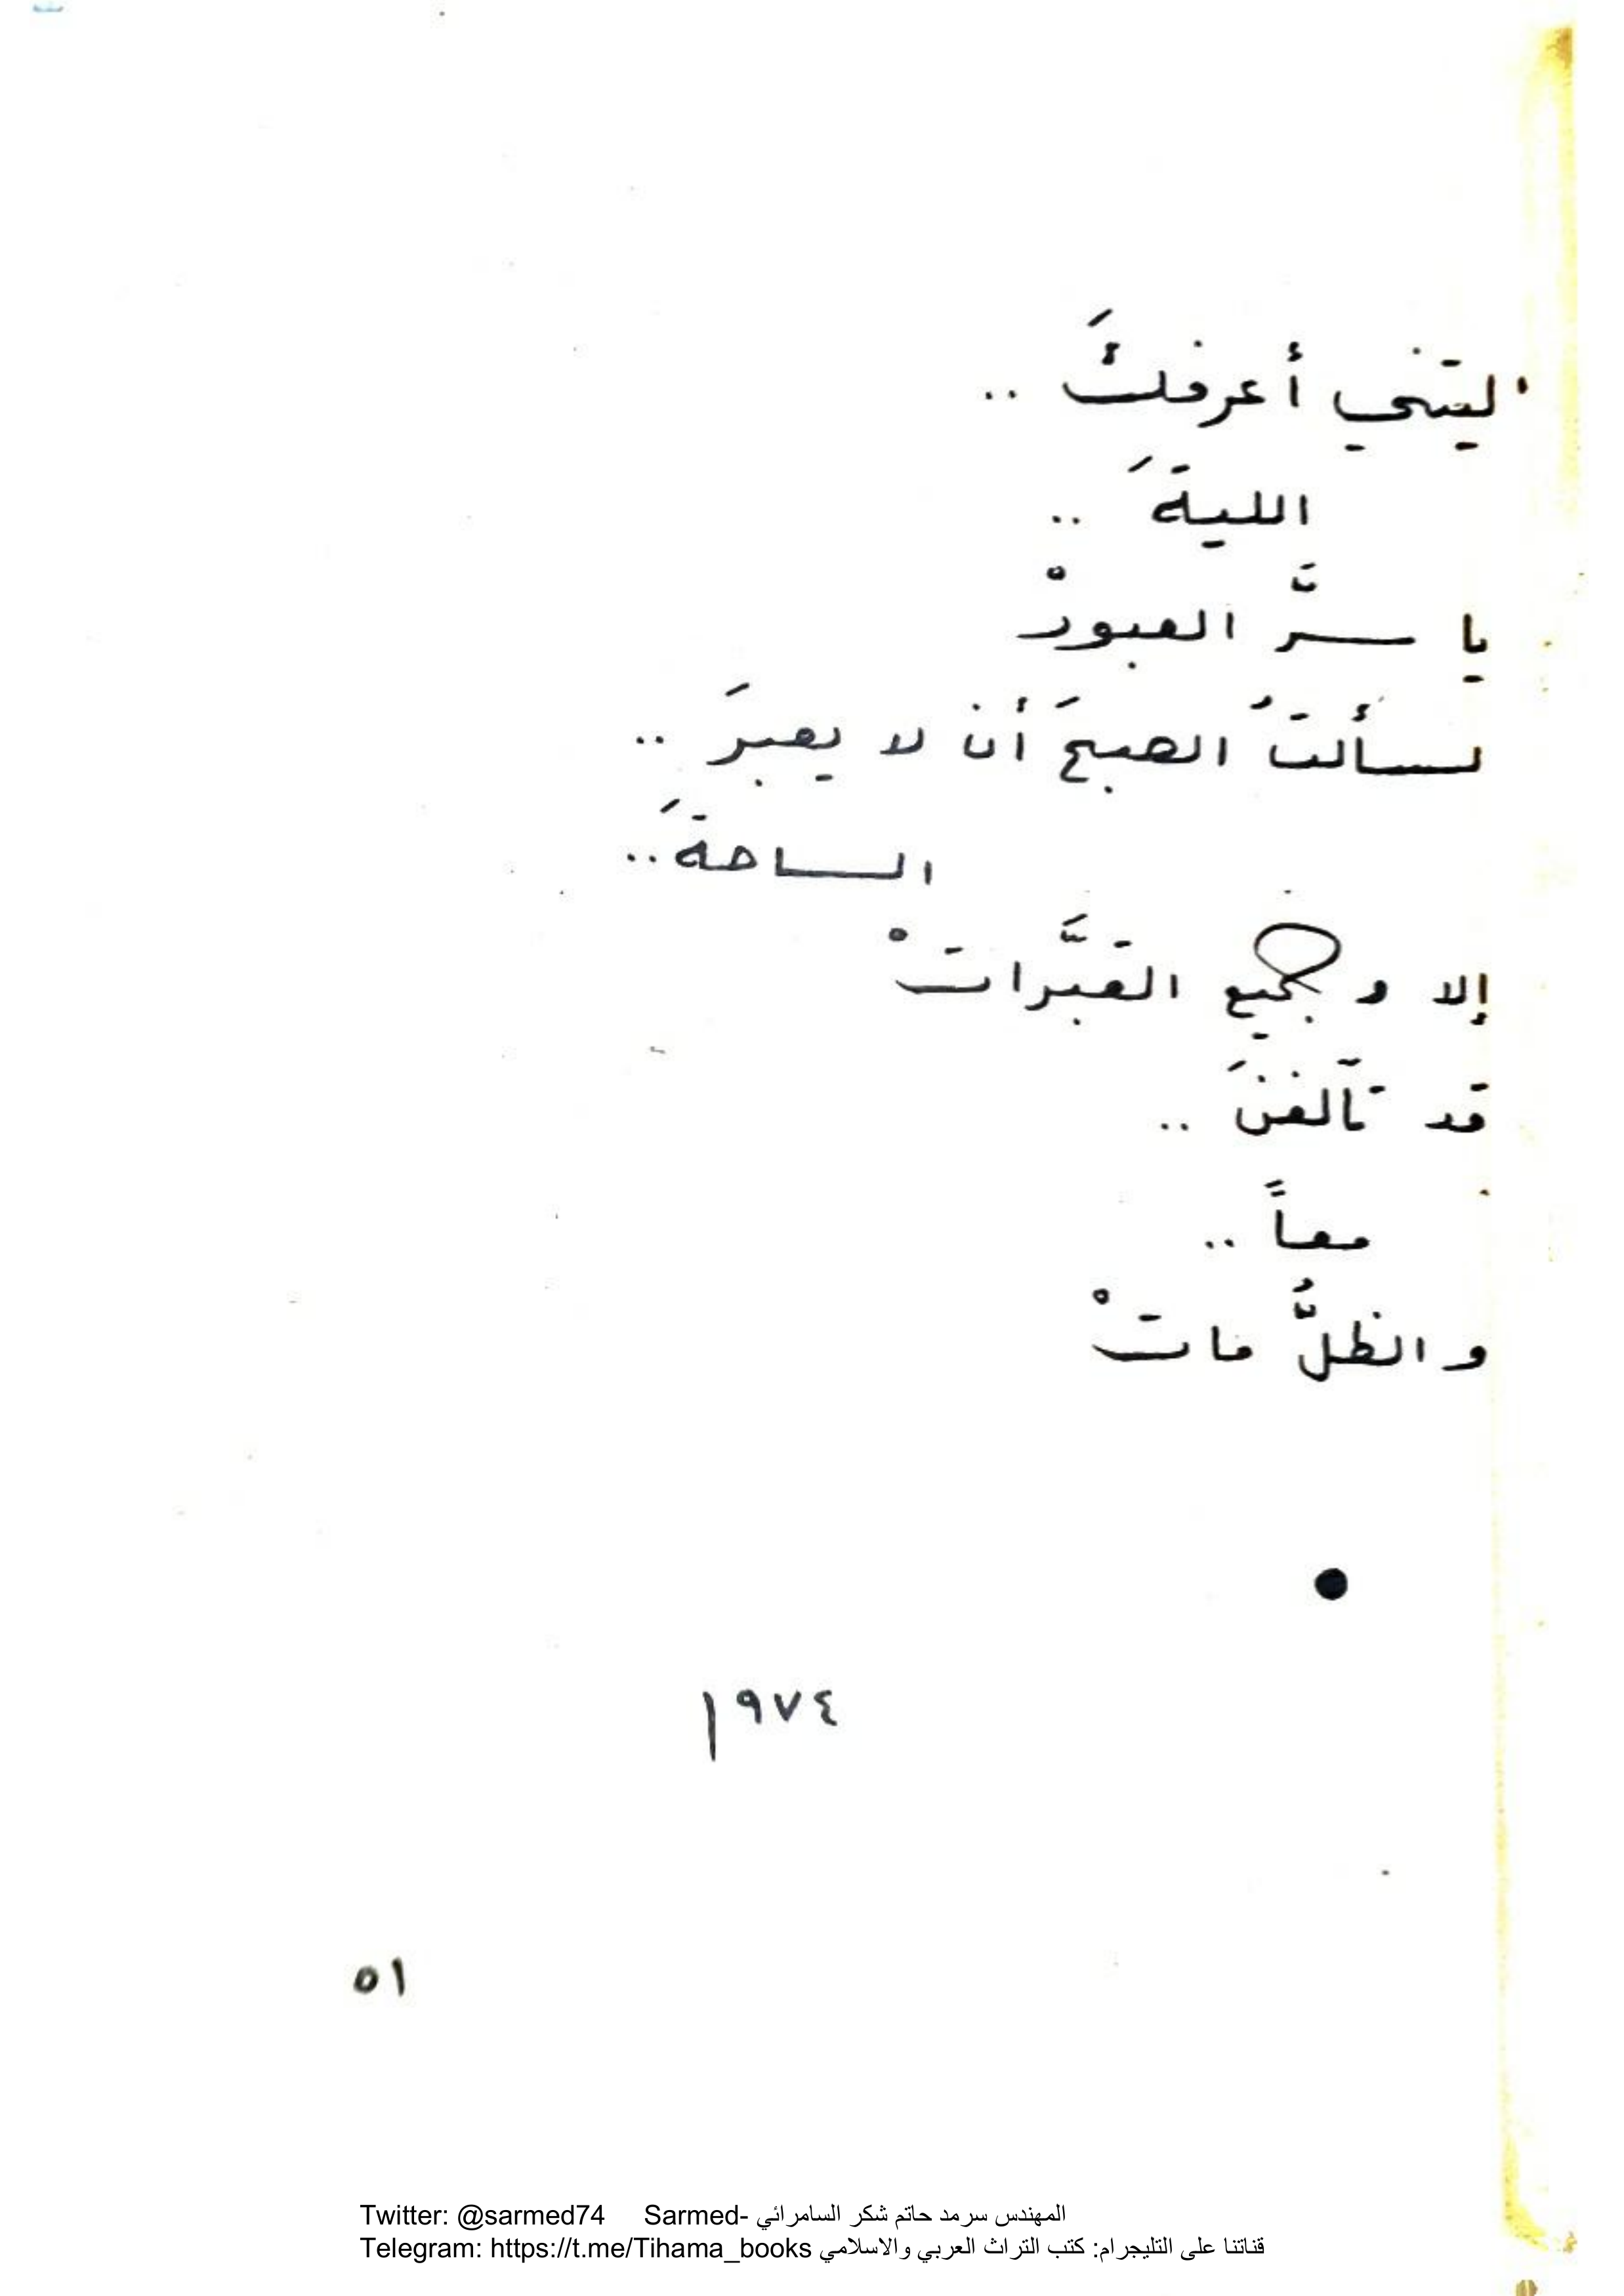 ليتني أعرفكَ ..
الليةَ ..
يا سرَّ العبورْ
لسألتُ الصبحَ أن لا يعبرَ ..
الساحةَ ..
إلا وجميع القبَّراتْ
قد تآلفنَ ..
معاً ..
والظلُّ ماتْ
●
١٩٧٤
٥١
Twitter: @sarmed74 Sarmed- المهندس سرمد حاتم شكر السامرائي
Telegram: https://t.me/Tihama_books قناتنا على التليجرام: كتب التراث العربي والاسلامي